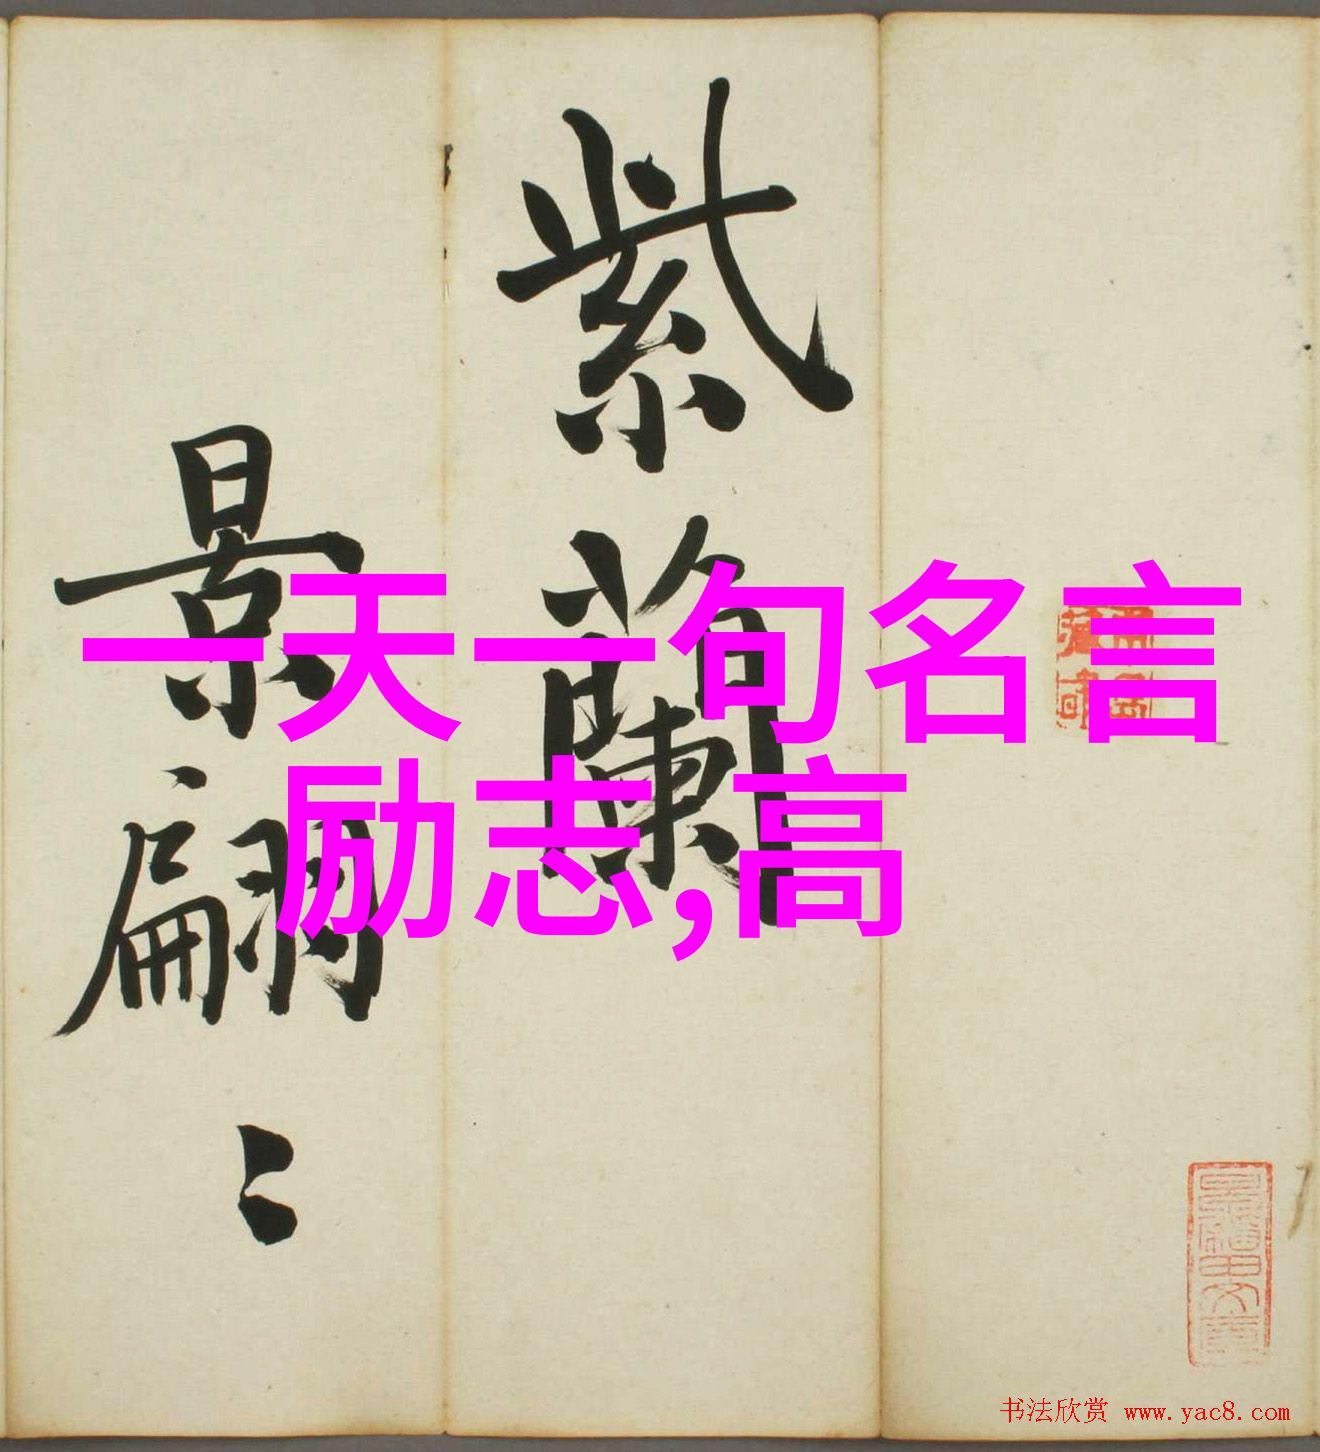 紫蘭
景翩〻
一天一句名言
励志,高
书法欣赏 www.yac8.com